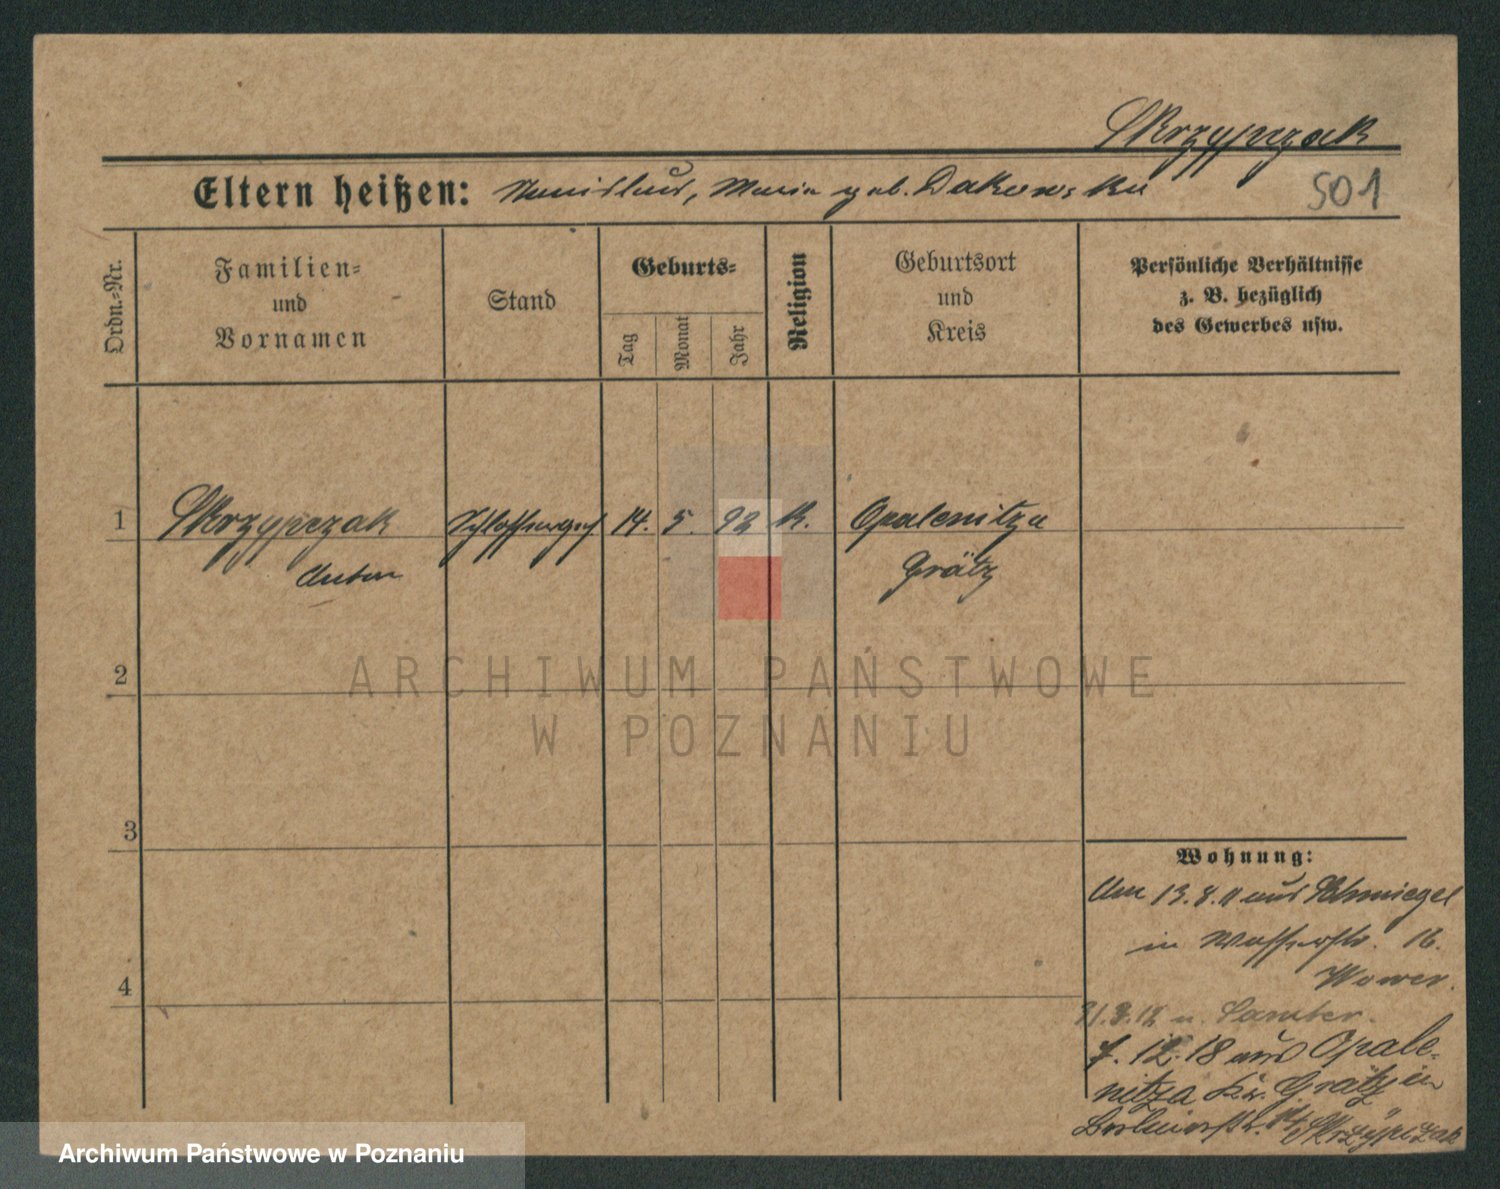 Skrzypczak
Eltern heißen: Stanislaus, Maria geb. Dakowska
501
Ordn.-Nr.
Familien-
und
Vornamen
Stand
Geburts-
Tag
Monat
Jahr
Religion
Geburtsort
und
Kreis
Persönliche Verhältnisse
z. B. bezüglich
des Gewerbes usw.
1 Skrzypczak Schlosserges. 14. 5. 92 K. Opalenitza
Anton Grätz
2
3
4
Wohnung:
Am 13.8.11 aus Schmiegel
in Wasserstr. 16.
31.8.12 n. Samter.
7.12.18 aus Opale-
nitza Kr. Grätz in
Skrzypczak
ARCHIWUM PAŃSTWOWE
W POZNANIU
Archiwum Państwowe w Poznaniu